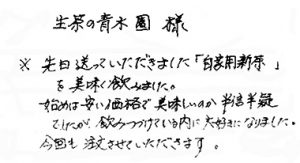 生茶の青木園 様
※ 先日送っていただきました「自家用新茶」
を美味く飲みました。
始めは安い価格で美味しいのか半信半疑
でしたが、飲みつづけている内に大好きになりました。
今回も注文させていただきます。